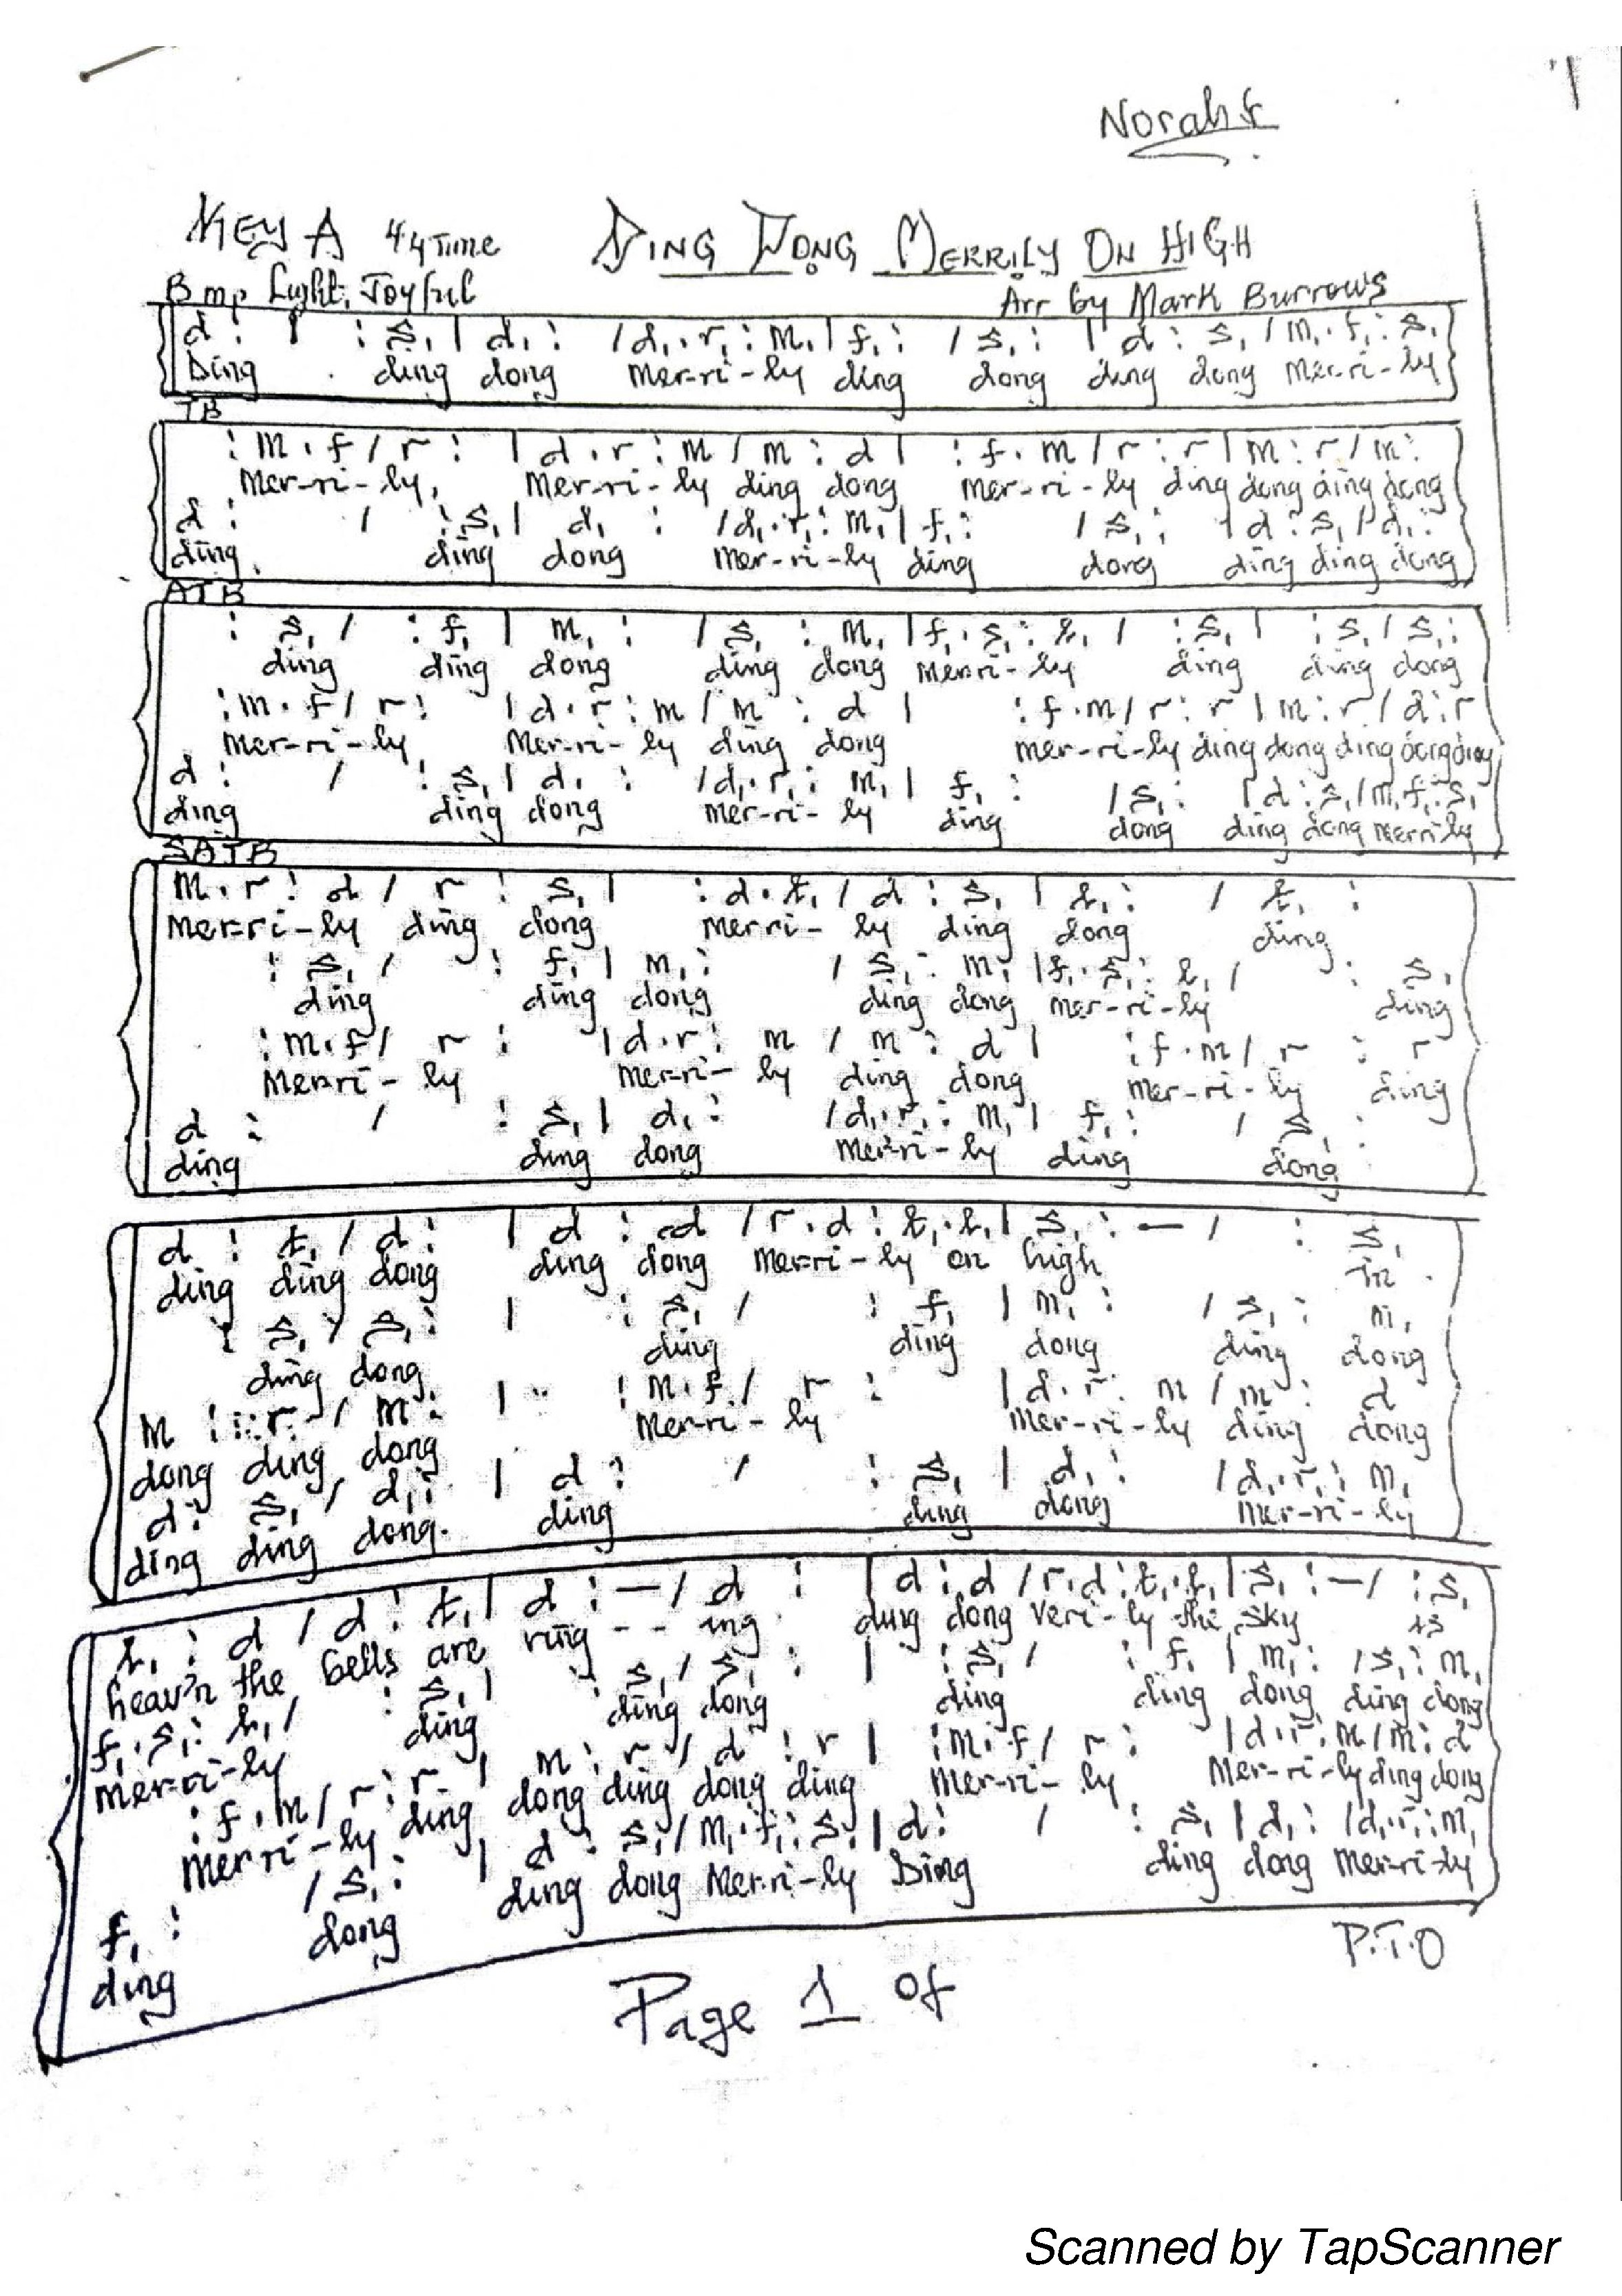 Norah k
KEY A 4/4 Time DING DONG MERRILY ON HIGH
B mp Light, Joyful Arr by Mark Burrows
d : | : s, | d, : / d, . r, : m, | f, : / s, : | d : s, / m, . f, : s,
Ding ding dong mer-ri-ly ding dong ding dong mer-ri-ly
TB
: m . f / r : | d . r : m / m : d | : f . m / r : r | m : r / m :
Mer-ri-ly, mer-ri-ly ding dong mer-ri-ly ding dong ding dong
d : / : s, | d, : / d, . r, : m, | f, : / s, : | d : s, / d, :
ding ding dong mer-ri-ly ding dong ding ding dong
ATB
: s, / : f, | m, : / s, : m, | f, . s, : l, / : s, | : s, / s, :
ding ding dong ding dong merri-ly ding ding dong
: m . f / r : | d . r : m / m : d | : f . m / r : r | m : r / d : r
mer-ri-ly Mer-ri-ly ding dong mer-ri-ly ding dong ding dong ding
d : / : s, | d, : / d, . r, : m, | f, : / s, : | d : s, / m, . f, : s,
ding ding dong mer-ri-ly ding dong ding dong merrily
SATB
m . r : d / r : s, | : d . t, / d : s, | l, : / t, :
mer-ri-ly ding dong merri-ly ding dong ding
: s, / : f, | m, : / s, : m, | f, . s, : l, / : s,
ding ding dong ding dong mer-ri-ly ding
: m . f / r : | d . r : m / m : d | : f . m / r : r
merri-ly mer-ri-ly ding dong mer-ri-ly ding
d : / : s, | d, : / d, . r, : m, | f, : / s, :
ding ding dong mer-ri-ly ding dong
d : t, / d : | d : d / r . d : t, . l, | s, : — / : s,
ding ding dong ding dong mer-ri-ly on high in
: s, / s, : | : s, / : f, | m, : / s, : m,
ding dong ding ding dong ding dong
m : r / m : | : m . f / r : | d . r : m / m : d
dong ding dong mer-ri-ly mer-ri-ly ding dong
d : s, / d, : | d : / : s, | d, : / d, . r, : m,
ding ding dong. ding ding dong mer-ri-ly
l, : d / d : t, | d : — / d : | d : d / r . d : t, . l, | s, : — / : s,
heav'n the bells are ring - - ing ding dong veri-ly the sky is
f, . s, : l, / : s, | : s, / s, : | : s, / : f, | m, : / s, : m,
mer-ri-ly ding ding dong ding ding dong ding dong
: f . m / r : r | m : r / d : r | : m . f / r : | d . r : m / m : d
merri-ly ding dong ding dong ding mer-ri-ly Mer-ri-ly ding dong
f, : / s, : | d : s, / m, . f, : s, | d : / : s, | d, : / d, . r, : m,
ding dong ding dong Mer-ri-ly Ding ding dong mer-ri-ly
P.T.O
Page 1 of
Scanned by TapScanner